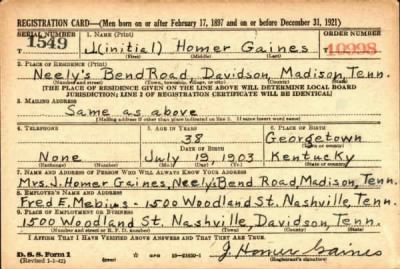 REGISTRATION CARD—(Men born on or after February 17, 1897 and on or before December 31, 1921)
SERIAL NUMBER 1. NAME (Print) ORDER NUMBER
1549 J(initial) Homer Gaines 10998
(First) (Middle) (Last)
2. PLACE OF RESIDENCE (Print)
Neely's Bend Road, Davidson, Madison, Tenn.
(Number and street) (Town, township, village, or city) (County) (State)
[THE PLACE OF RESIDENCE GIVEN ON THE LINE ABOVE WILL DETERMINE LOCAL BOARD
JURISDICTION; LINE 2 OF REGISTRATION CERTIFICATE WILL BE IDENTICAL]
3. MAILING ADDRESS
Same as above
[Mailing address if other than place indicated on line 2. If same insert word same]
4. TELEPHONE 5. AGE IN YEARS 6. PLACE OF BIRTH
38 Georgetown
DATE OF BIRTH (Town or county)
None July 19, 1903 Kentucky
(Exchange) (Number) (Mo.) (Day) (Yr.) (State or country)
7. NAME AND ADDRESS OF PERSON WHO WILL ALWAYS KNOW YOUR ADDRESS
Mrs. J. Homer Gaines, Neely's Bend Road, Madison, Tenn.
8. EMPLOYER'S NAME AND ADDRESS
Fred E. Mebius - 1500 Woodland St. Nashville, Tenn.
9. PLACE OF EMPLOYMENT OR BUSINESS
1500 Woodland St. Nashville, Davidson, Tenn.
(Number and street or R. F. D. number) (Town) (County) (State)
I AFFIRM THAT I HAVE VERIFIED ABOVE ANSWERS AND THAT THEY ARE TRUE.
D. S. S. Form 1 J. Homer Gaines
(Revised 1-1-42) (over) (Registrant's signature)